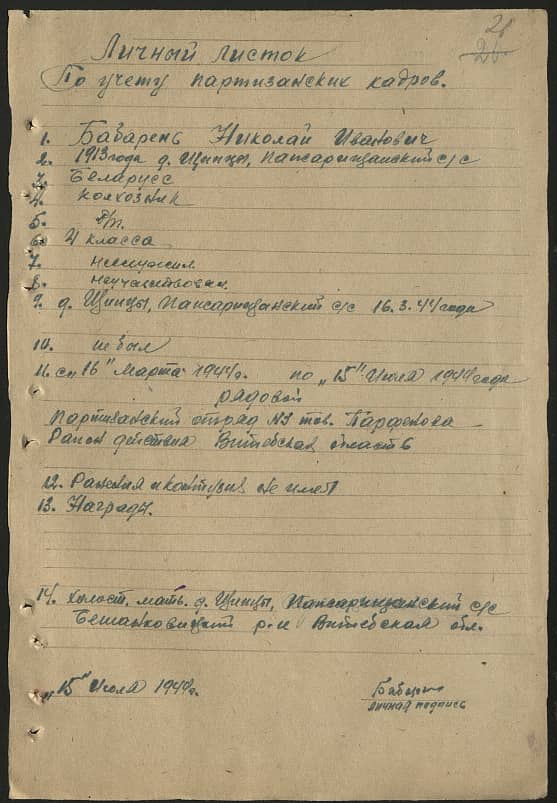 Личный листок
По учету партизанских кадров.
1. Бабарень Николай Иванович
2. 1913 года д. Щипцы, Папсарищанский с/с
3. Беларусс
4. колхозник
5. б/п.
6. 4 класса
7. неслужил
8. неучаствовал
9. д. Щипцы, Папсарищанский с/с 16.3.44 года
10. не был
11. с „16" марта 1944 г. по „15" июля 1944 года
рядовой
Партизанский отряд тов. Парфенова
Район действия Витебская область
12. Ранения и контузий не имел
13. Награды.
14. холост, мать. д. Щипцы, Папсарищанский с/с
Бешанковицкий р-н Витебская обл.
„15" Июля 1944 г.
личная подпись